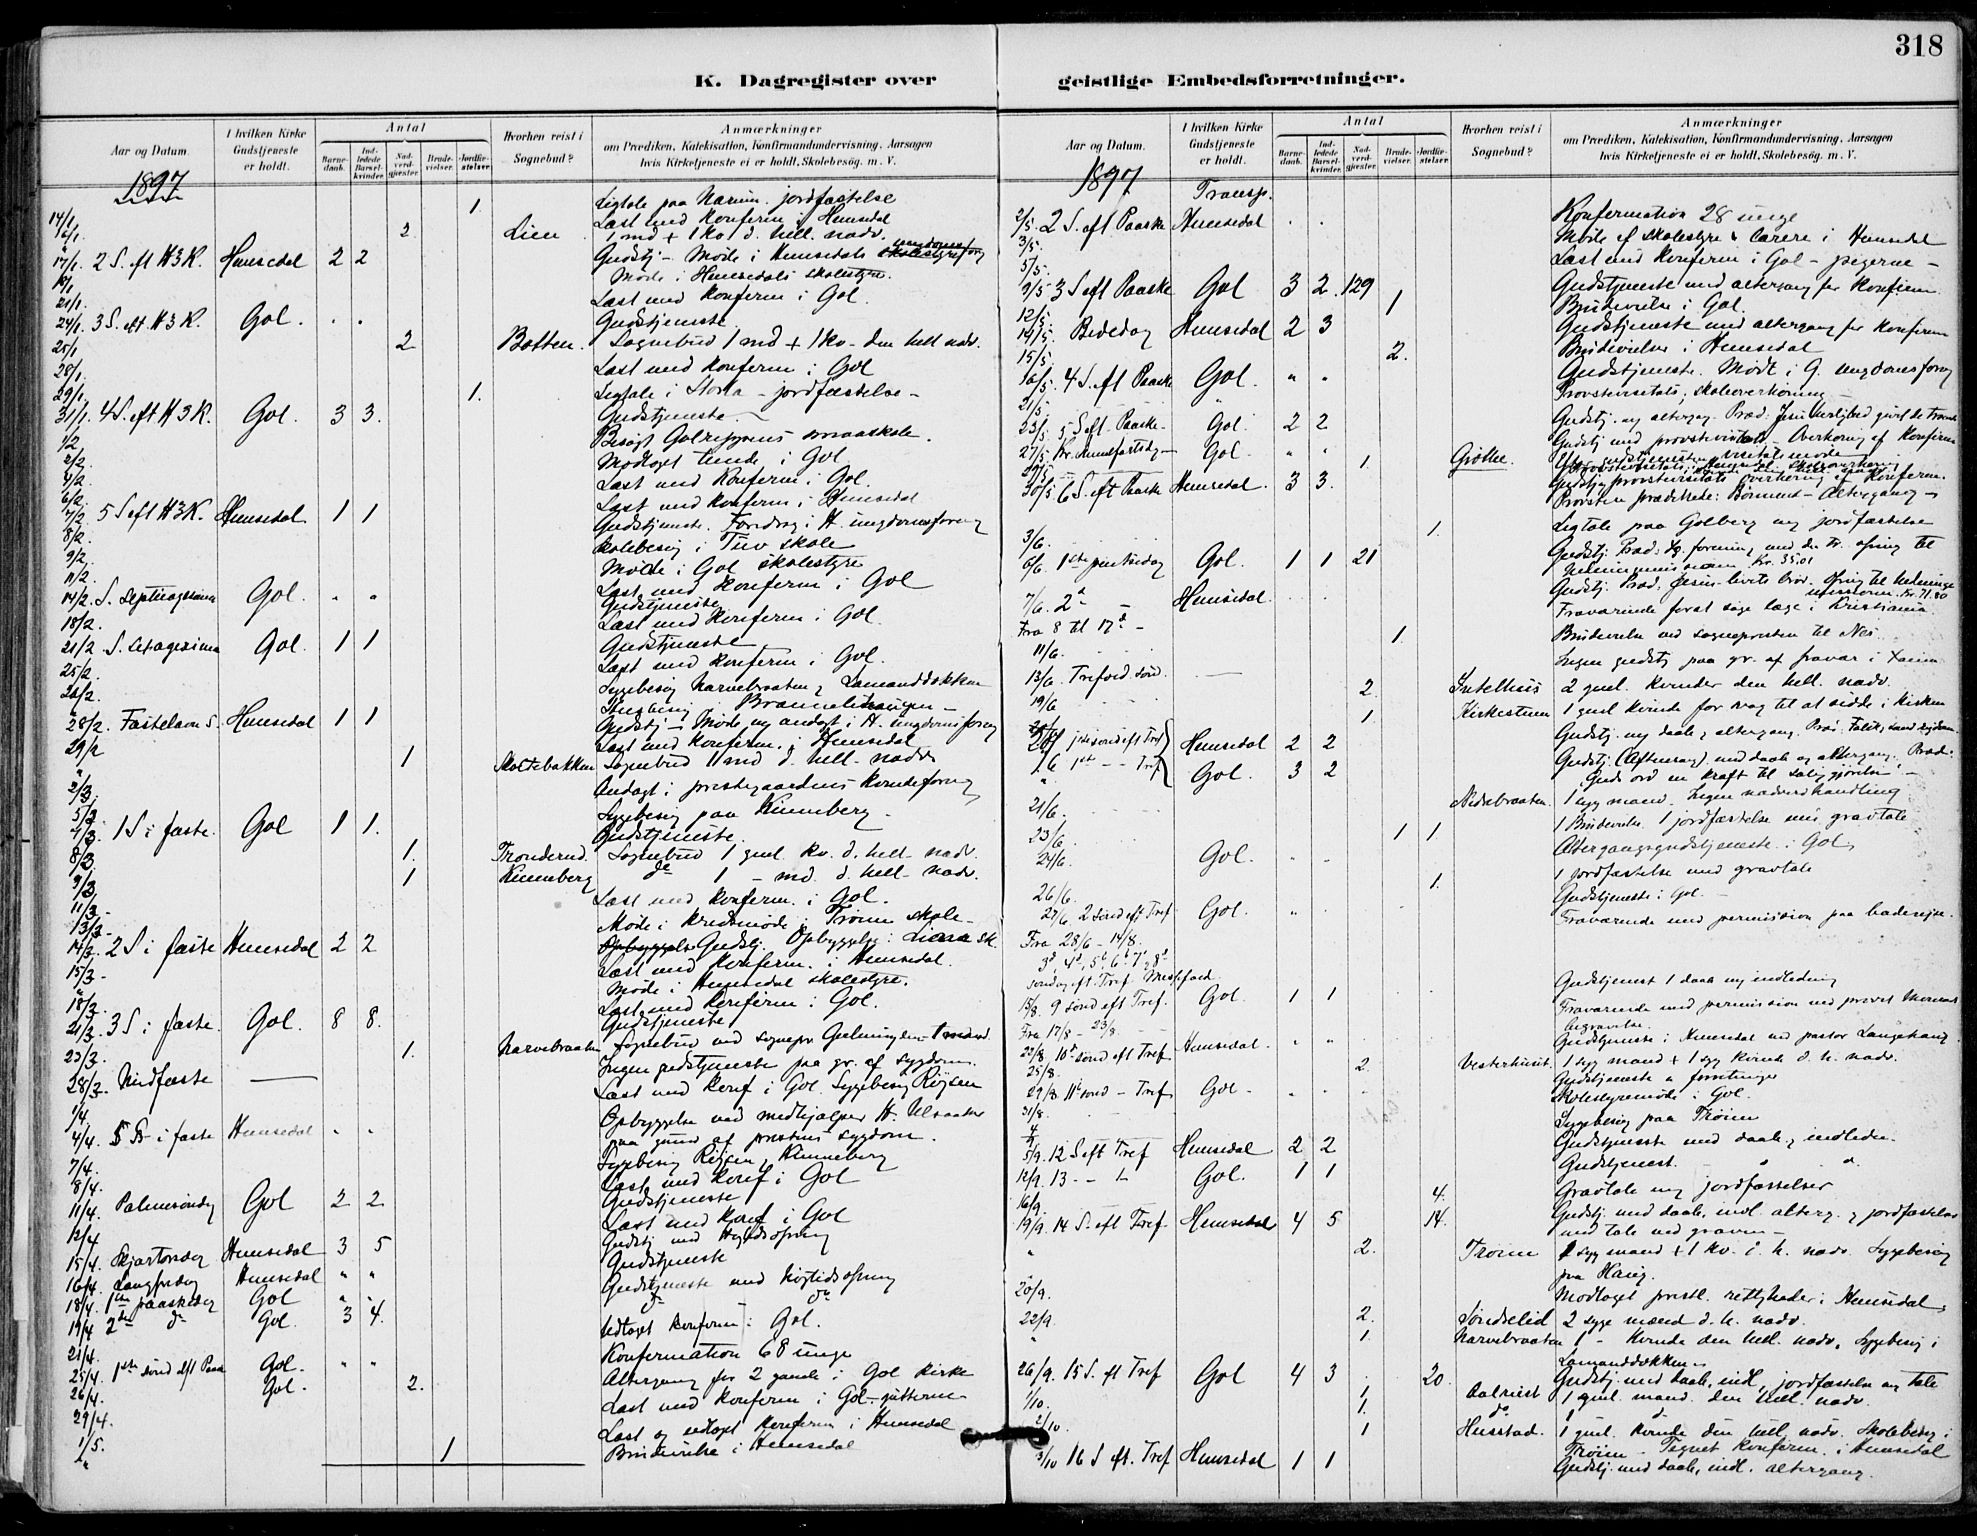 318
K. Dagregister over geistlige Embedsforretninger.
Aar og Datum.
I hvilken Kirke Gudstjeneste er holdt.
Antal
Barnedaab.
Indledede Barselkvinder.
Nadverdgjester.
Brudevielser.
Jordfæstelser.
Hvorhen reist i Sognebud?
Anmærkninger
om Prædiken, Katekisation, Konfirmandundervisning, Aarsagen
hvis Kirketjeneste ei er holdt, Skolebesøg. m. V.
1897
14/1. 1. Ligtale paa Narum. jordfæstelse
16/1. Læst med Konferm i Hemsedal
" 2 Lien 1 md + 1 ko d. hell. nadv.
17/1. 2 S. eft H3K. Hemsedal 2 2 Gudstj - Møde i Hemsedals ungdomsforg
Møde i Hemsedals skolestyre.
21/1. Læst med Konferm i Gol.
24/1. 3 S. eft H3K. Gol. . . Gudstjeneste
25/1 2 Botten. Sognebud 1 md + 1 ko - den hell nadv.
28/1. Læst med Konferm i Gol
29/1. 1. Ligtale i Storla - jordfæstelse -
31/1. 4 S. eft H3K. Gol. 3 3. Gudstjeneste
1/2 Besøgt Golreppens smaaskole.
2/2. Modtaget tiende i Gol
4/2. Læst med Konferm i Gol.
6/2. Læst med Konferm i Hemsedal
7/2. 5 S eft H3K. Hemsedal 1 1 Gudstjeneste. Foredrag i H. ungdomsforeng
8/2. Skolebesøg i Tuv skole
9/2. Møde i Gol skolestyre
11/2. Læst med Konferm i Gol
14/2. S. Septuagesima Gol. " " Gudstjeneste
18/2. Læst med Konferm i Gol.
21/2 S. Sexagesima Gol. 1 1 Gudstjeneste
25/2. Læst med Konferm i Gol.
26/2. Sygebesøg Narvebraaten, Lamanddokken
28/2. Fastelavn S. Hemsedal 1 1 Gudstj - Møde og andagt i H. ungdomsforeng
Læst med Konferm. i Hemsedal
" 1 Skoltebakken Sognebud 1 md d. hell. nadv
2/3. Andagt i prestegaardens Kvindeforeng
5/3. Sygebesøg paa Kinneberg.
7/3. 1 S i faste. Gol 1 1. Gudstjeneste.
8/3. 1. Tronderud. Sognebud 1 gml. kv. d. hell. nadv.
9/3. 1 Kinneberg do 1 - md. d. hell. nadv.
11/3. Læst med Konferm. i Gol.
13/3. Møde i kredsmøde i Trøim skole.
14/3. 2 S i faste Hemsedal 2 2 Gudstj. Opbyggelse i Liaa sk.
15/3. Læst med Konferm. i Hemsedal.
" Møde i Hemsedal skolestyre.
18/3. Læst med Konferm i Gol.
21/3. 3 S i faste. Gol. 8 8. Gudstjeneste
23/3. 1. Narvebraaten Sognebud ved sognepr.
28/3. Midfaste — Ingen gudstjeneste paa gr. af sygdom.
1/4. Læst med Konf i Gol. Sygebesøg Røisen
4/4. 5 S i faste Hemsedal " " Opbyggelse ved medhjælper H. Ulsaker
paa grund af prestens sygdom.
7/4. Sygebesøg Røisen, Kinneberg
8/4. Læst med Konf i Gol
11/4. Palmesøndag Gol 2 2 Gudstjeneste
12/4 Læst med Konf i Gol
15/4. Skjærtorsdag Hemsedal 3 5 Gudstj med Høitidsofring
16/4. Langfredag Hemsedal " " Gudstjeneste
18/4. 1ste paaskedag Gol " " Gudstjeneste med høitidsofring
19/4 2den do Gol. 3 4. do do
21/4. Udtaget Konferm i Gol.
25/4. 1ste sønd eft Paaske Gol. " " Konfermation 68 unge
26/4. Gol. 2. Altergang for 2 gamle i Gol kirke
29/4. Læst med Konferm i Gol - gutterne
1/5. Læst og udtaget Konferm i Hemsedal
" 1 Brudevielse i Hemsedal
Aar og Datum.
I hvilken Kirke Gudstjeneste er holdt.
Antal
Barnedaab.
Indledede Barselkvinder.
Nadverdgjester.
Brudevielser.
Jordfæstelser.
Hvorhen reist i Sognebud?
Anmærkninger
om Prædiken, Katekisation, Konfirmandundervisning, Aarsagen
hvis Kirketjeneste ei er holdt, Skolebesøg. m. V.
1897 Transp.
2/5. 2 S. eft Paaske Hemsedal . . Konfermation 28 unge
3/5. Møde af skolestyre & lærere i Hemsedal
5/5. Læst med Konferm i Gol - pigerne -
9/5 3 S eft Paaske Gol 3 2. 129 Gudstjeneste med altergang for Konferm
12/5. 1 Brudevielse i Gol.
14/5. Bededag Hemsedal 2 3 Gudstjeneste med altergang for Konferm
15/5. 2. Brudevielser i Hemsedal
16/5. 4 S. eft Paaske Gol. " " Gudstjeneste. Møde i G. ungdomsforeng
21/5. Provstevisitats, skoleoverhøring
23/5. 5 S eft. Paaske Gol. 2 2 Gudstj. og altergang. Præd.
27/5 Kr. Himmelfartsdag Gol. " " Gudstj med provstevisitats - Overhøring af Konferm
29/5 1. Grøthe.
30/5. 6 S. eft Paaske Hemsedal. 3 3. Gudstj, provstevisitats overhøring af Konferm.
Provsten prædikede: Altergang
3/6. 1. Ligtale paa Golberg og jordfæstelse
6/6. 1ste pintsedag Gol. 1 1 21 Gudstj. Præd: ofring til
Kr. 35.01
7/6. 2den - Hemsedal. . . Gudstj. Præd. ofring til hedninge
missionen. Kr. 71.80
Fra 8 til 17de - Fraværende forat søge læge i Kristiania
11/6. 1. Brudevielse ved sognepresten til Nes.
13/6. Trefold. sønd. — Ingen gudstj paa gr. af fravær i Xania
19/6 2. 2 gml. kvinder den hell. nadv.
1 Kirkestuen 1 gml kvinde for svag til at sidde i kirken
20/6 1ste sønd eft Tref Hemsedal 2 2 Gudstj. og daab, altergang.
" 1st - - Tref Gol. 3 2 Gudstj. (Aftensang) med daab og altergang. Præd:
Guds ord en kraft til saliggjørelse -
21/6. Nedrebraaten. 1 syg mand. Ingen nadverdhandling
23/6. 1 1 1 Brudevielse. 1 jordfæstelse med gravtale
24/6. Gol. " " Altergangsgudstjeneste i Gol,
26/6. 1. 1 jordfæstelse med gravtale
27/6 2 sønd eft Tref Gol. " . Gudstjeneste i Gol. -
Fra 28/6 - 14/8. Fraværende med permission paa badereise.
3d, 4d, 5d, 6d, 7d, 8d
søndag eft. Tref. Messefald.
15/8. 9 sønd eft Tref. Gol. 1 1 Gudstjenest 1 daab og indledning
Fra 17/8 - 23/8. Fraværende med permission ved provst
begravelse.
22/8 10de sønd eft Tref. Hemsedal. " " Gudstjeneste i Hemsedal ved pastor
25/8. 2. 1 syg mand + 1 syg kvinde d. h. nadv.
29/8. 11te sønd - Tref Gol - . . Gudstjeneste u forretninger
31/8. Skolestyremøde i Gol.
Sygebesøg paa Trøim
5/9. 12 S eft Tref Hemsedal 2 2 Gudstjeneste med daab, indledn.
12/9. 13 - - Gol. 1 1 Gudstjenest. - " "
16/9. 4. Gravtale og jordfæstelser
19/9. 14 S. eft Tref Hemsedal 4 5 14. Gudstj. med daab, indl alterg. og jordfæstelse
med tale ved graven -
" 2. Trøim 1 syg mand + 1 kv. d. h. nadv. Sygebesøg
paa
20/9. Modtaget prestl. rettigheder i Hemsedal
22/9. 2. Søndrelid 2 syge mænd d. h. nadv.
" 1. Narvebraaten 1 - kvinde den hell. nadv. Sygebesøg i
Lamanddokken
26/9. 15 S. eft Tref Gol 4 3 20. Gudstj. med daab, indl, jordfæstelse og tale
1/10. 1. Aalrust 1 gml. mand. den hell. nadv.
1. do 1 d.
2/10. 1 Husstad. 1 gml. kvinde den hell. nadv. Skolebesøg i
Trøim - Tegnet Konferm. i Hemsedal
3/10 16 S eft. Tref Hemsedal 1 1 Gudstj. med daab, indl. altergang.